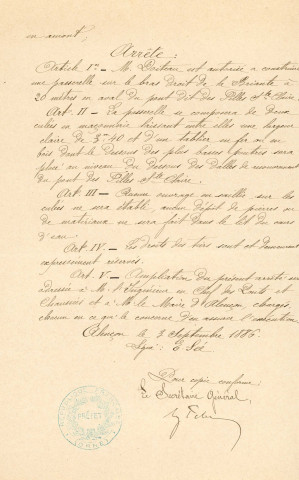 en amont.
Arrête :
Article 1er — M. est autorisé à construire
une passerelle sur le bras droit de la Briante à
20 mètres en aval du pont dit des Filles Ste Claire.
Art. II — La passerelle se composera de deux
culées en maçonnerie laissant entre elles une largeur
claire de 3m40 et d'un tablier en fer ou en
bois dont le dessous des plus basses poutres sera
placé au niveau du dessous des dalles de recouvrement
du pont des Filles Ste Claire.
Art. III — Aucun ouvrage en saillie sur les
culées ne sera établi, aucun dépôt de pierres ou
de matériaux ne sera fait dans le lit du cours
d'eau.
Art. IV — Les droits des tiers sont et demeurent
expressément réservés.
Art. V — Ampliation du présent arrêté sera
adressée à M. l'Ingénieur en Chef des Ponts et
Chaussées et à M. le Maire d'Alençon, chargés,
chacun en ce qui le concerne d'en assurer l'exécution.
Alençon le 2 Septembre 1886.
Signé : E Sée
Pour copie conforme :
Le Secrétaire Général,